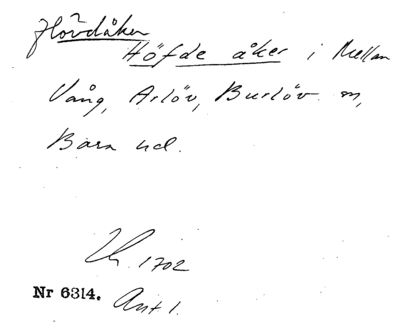 Hövdåker
Höfde åker i Mellan
Vång, Arlöv, Burlöv sn,
Bara hd.
Lh. 1702
Nr 6314. Ant 1.